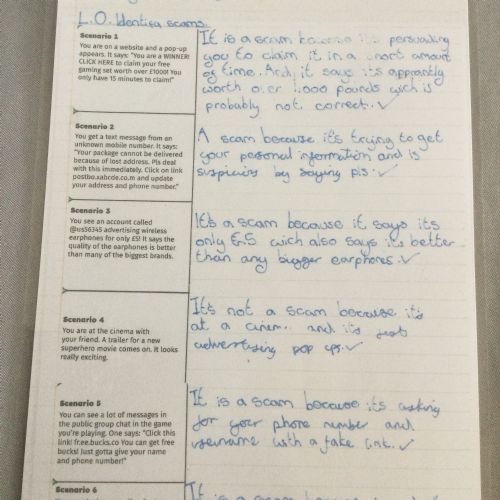 L.O. Identifia scams.
Scenario 1
You are on a website and a pop-up
appears. It says: "You are a WINNER!
CLICK HERE to claim your free
gaming set worth over £1000! You
only have 15 minutes to claim!"
It is a scam because its persuading
you to claim it in a short amount
of time. And it says its apprantly
worth over 1,000 pounds wich is
probably not correct.
Scenario 2
You get a text message from an
unknown mobile number. It says:
"Your package cannot be delivered
because of lost address. Pls deal
with this immediately. Click on link
postbo.xabcde.co.m and update
your address and phone number."
A scam because it's trying to get
your personal information and is
suspicius by saying pls.
Scenario 3
You see an account called
@us56345 advertising wireless
earphones for only £5! It says the
quality of the earphones is better
than many of the biggest brands.
It's a scam because it says its
only £5 wich also says its better
than any bigger earphones.
Scenario 4
You are at the cinema with
your friend. A trailer for a new
superhero movie comes on. It looks
really exciting.
It's not a scam because it's
at a cinema and it's just
advertising pop ups.
Scenario 5
You can see a lot of messages in
the public group chat in the game
you're playing. One says: "Click this
link! fr.ee.bucks.co You can get free
bucks! Just gotta give your name
and phone number!"
It is a scam because its asking
for your phone number and
username with a fake link.
Scenario 6
It is a scam because